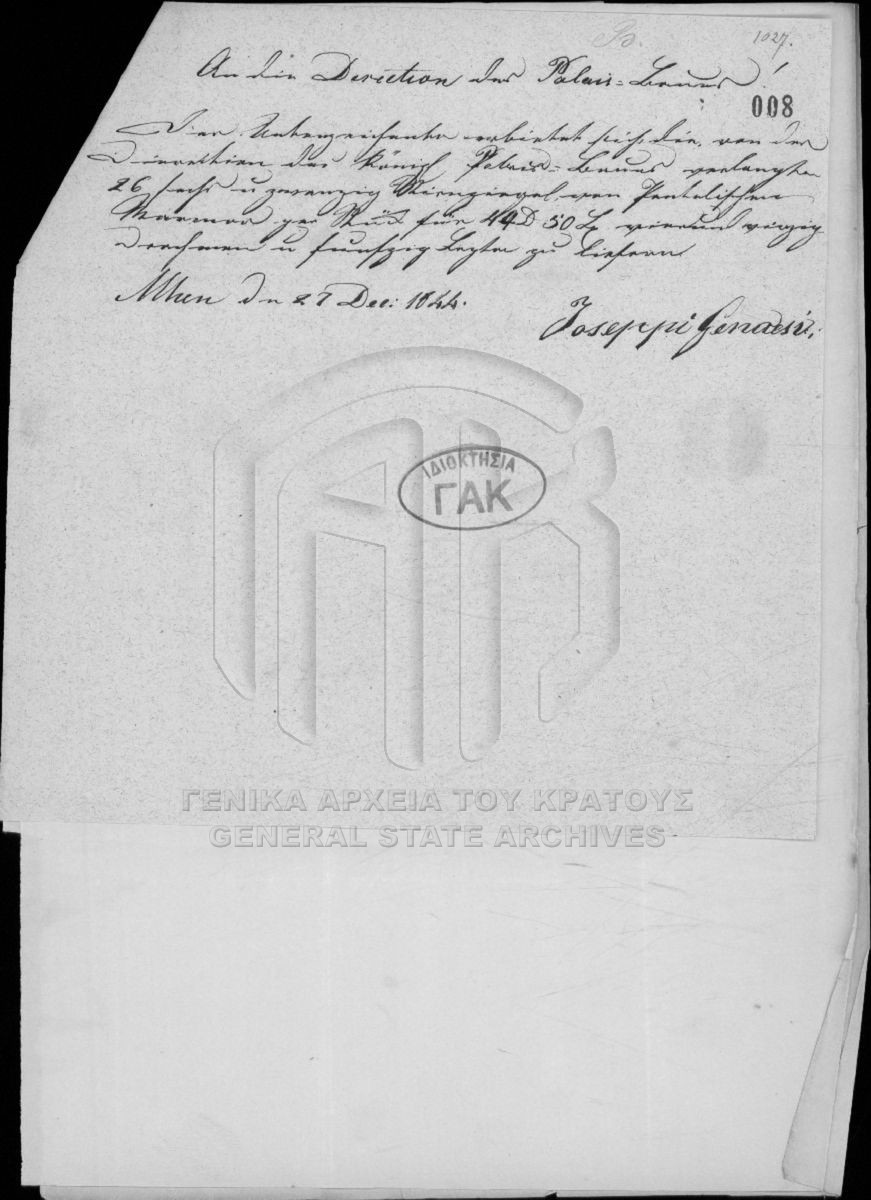 B.
1027.
An die Direction des Palais-Baues!
008
Der Unterzeichnete erbietet sich die, von der
Direction des königl Palais-Baues verlangte
26 sechs u zwanzig Stirnziegel, von Pentelischen
Marmor per Stück für 44 D 50 L vierund vierzig
Drachmen u funfzig Lepta zu liefern
Athen den 27 Dec: 1844.
Joseppi
ΙΔΙΟΚΤΗΣΙΑ
ΓΑΚ
ΓΕΝΙΚΑ ΑΡΧΕΙΑ ΤΟΥ ΚΡΑΤΟΥΣ
GENERAL STATE ARCHIVES